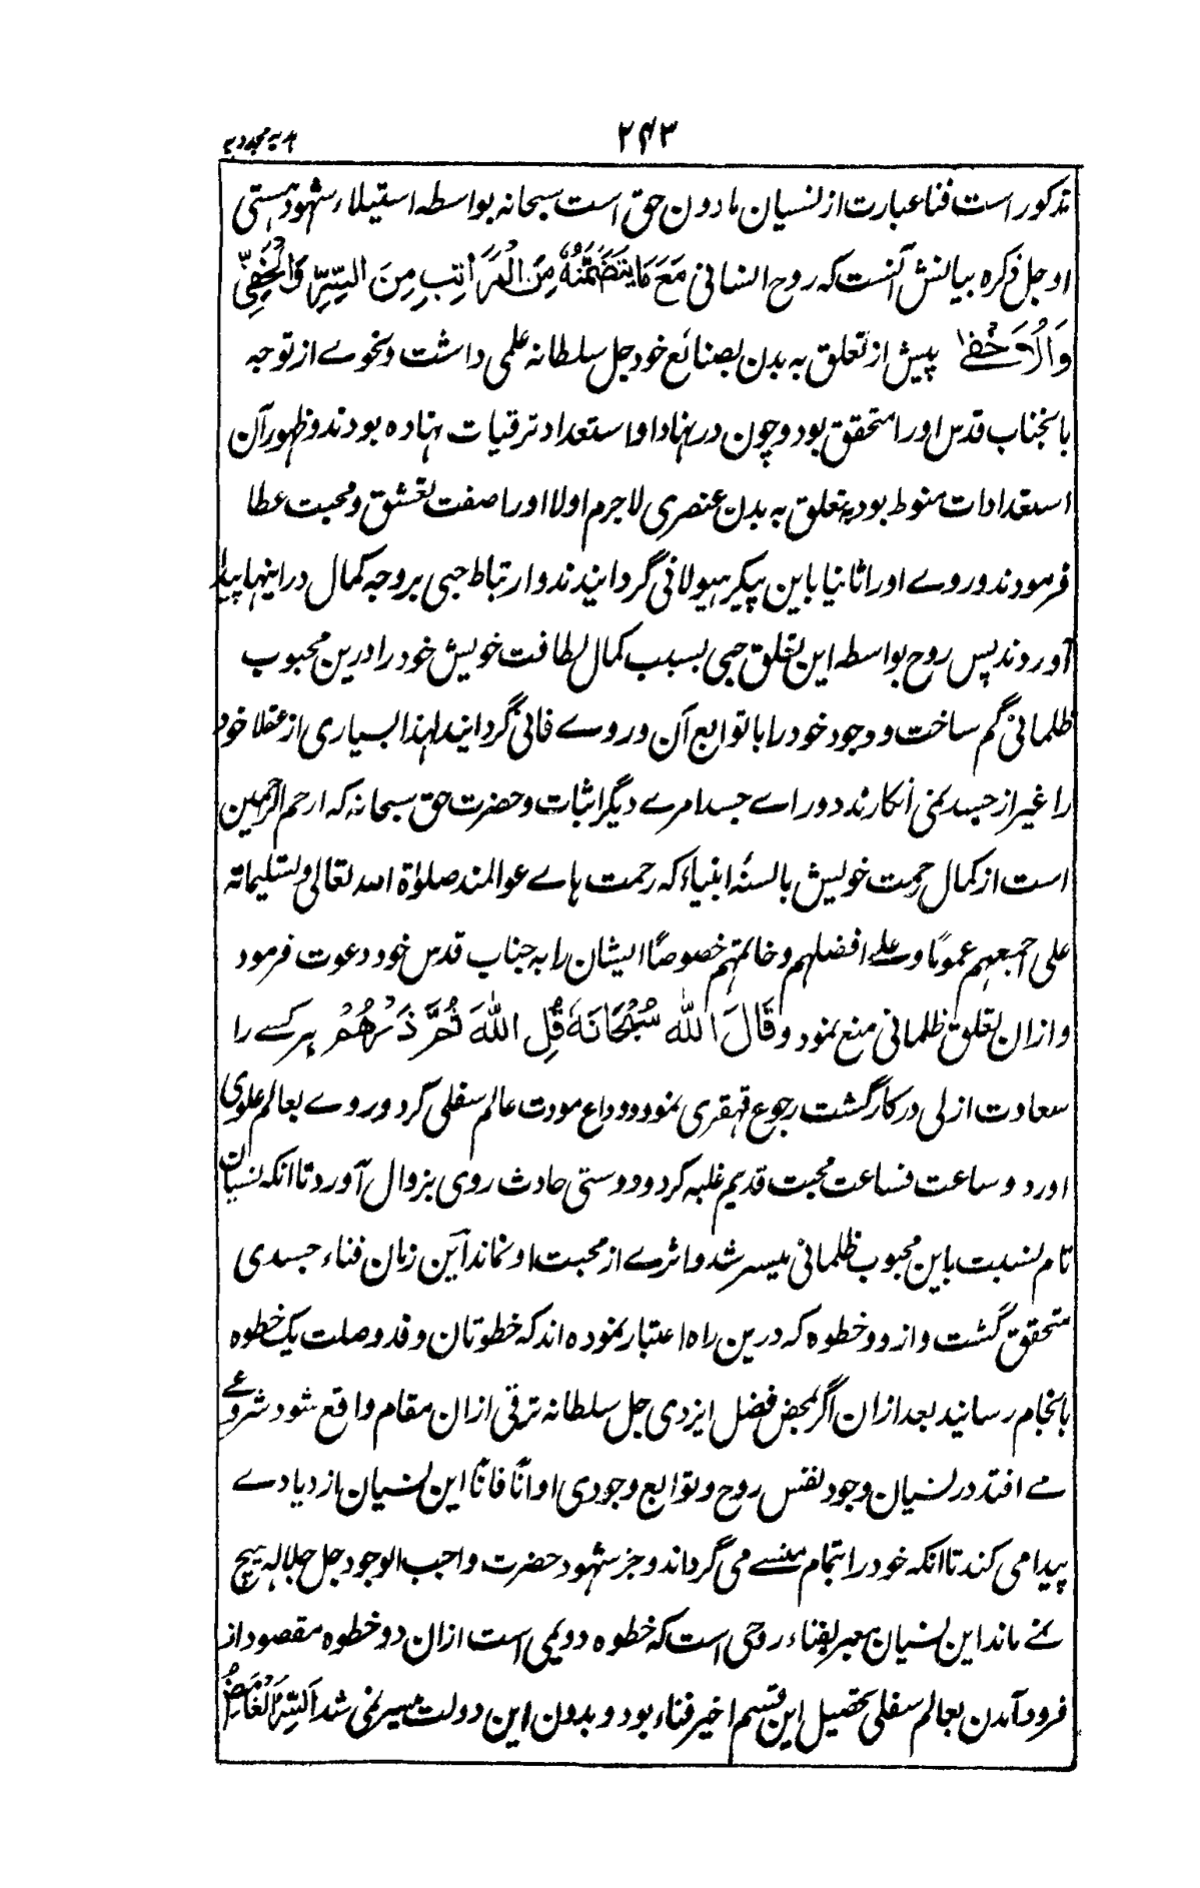 ۲۴۳
ہدیہ مجددیہ
مذکور است فنا عبارت از نسیان مادون حق است سبحانہ بواسطہ استیلاء شہود ہستی
او جل ذکرہ بیانش آنست کہ روح انسانی مَعَ مَا يَتَضَمَّنُهُ مِنَ الْمَرَاتِبِ مِنَ السِّرِّ وَالْخَفِيِّ
وَالْأَخْفٰى پیش از تعلق بہ بدن بصنائع خود جل سلطانہ علمی داشت و نحوے از توجہ
بانجناب قدس او را متحقق بود و چون در نہاد او استعداد ترقیات نہادہ بودند و ظہور آن
استعدادات منوط بود بہ تعلق بہ بدن عنصری لاجرم اولا او را صفت تعشق و محبت عطا
فرمودند و روے او را ثانیا باین پیکر ہیولانی گردانیدند و ارتباط حبی بر وجہ کمال در اینہا پیدا
آوردند پس روح بواسطہ این تعلق حبی بسبب کمال لطافت خویش خود را درین محبوب
ظلمانی گم ساخت و وجود خود را با توابع آن در وے فانی گردانید لہذا بسیاری از عقلا خود
را غیر از جسد نمی انگارند و ورائے جسد امرے دیگر اثبات و حضرت حق سبحانہ کہ ارحم الراحمین
است از کمال رحمت خویش بالسنۂ انبیاء کہ رحمت ہاے عوالمند صلوٰة اللہ تعالی و تسلیماتہ
علی جمیعہم عموما و علے افضلہم و خاتمہم خصوصًا ایشان را بہ جناب قدس خود دعوت فرمود
و ازان تعلق ظلمانی منع نمود وَقَالَ اللهُ سُبْحَانَهُ قُلِ اللهَ ثُمَّ ذَرْهُمْ ہر کسے را
سعادت ازلی در کار گشت رجوع قہقری نمود و وداع مودت عالم سفلی کرد و روے بعالم علوی
اورد و ساعت فساعت محبت قدیم غلبہ کرد و دوستی حادث روی بزوال آورد تا انکہ نسیان
تام نسبت باین محبوب ظلمانی میسر شد و اثرے از محبت او نماند این زمان فناء جسدی
متحقق گشت و از دو خطوہ کہ درین راہ اعتبار نمودہ اند کہ خطوتان و قد وصلت یک خطوہ
بانجام رسانید بعد ازان اگر بمحض فضل ایزدی جل سلطانہ ترقی ازان مقام واقع شود شروعے
مے افتد در نسیان وجود نفس روح و توابع وجودی او آنًا فانًا این نسیان ازدیادے
پیدا می کند تا انکہ خود را بتمام منسے می گرداند و جز شہود حضرت واجب الوجود جل جلالہ ہیچ
نمے ماند این نسیان معبر بفناء روحی است کہ خطوہ دویمی است ازان دو خطوہ مقصود از
فرود آمدن بعالم سفلی تحصیل این قسم اخیر فناء بود و بدون این دولت میسر نمی شد اَلسِّرُّ الْغَامِضُ